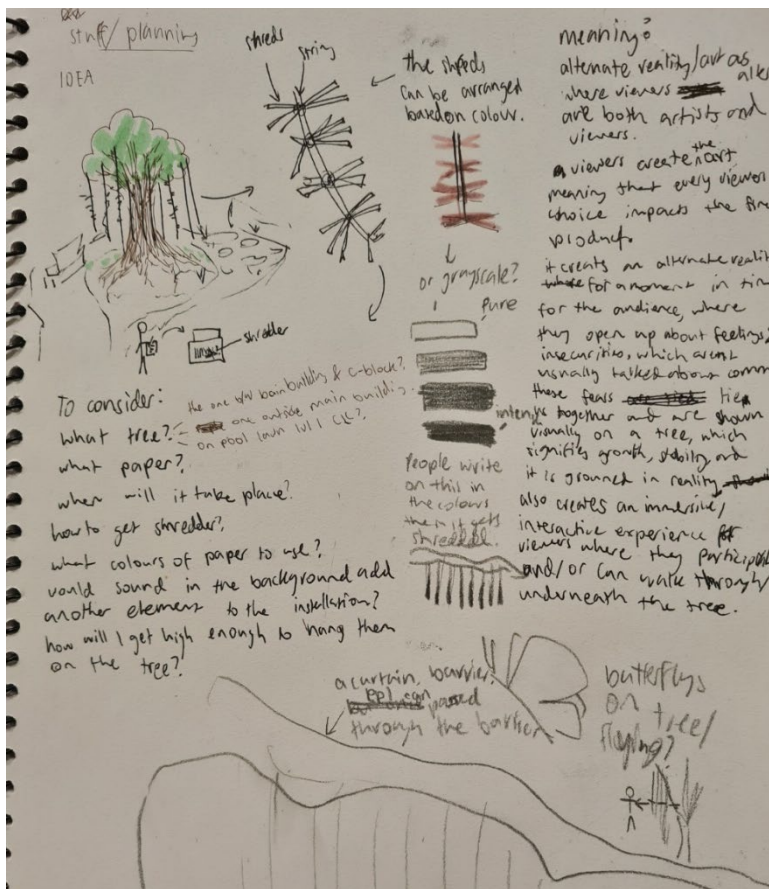 stuff/planning
IDEA
shreds
string
the shreds
can be arranged
based on colour.
or grayscale?
pure
intense
People write
on this in
the colours
then it gets
shredded.
shredder
To consider:
what tree?
the one b/w building & c-block?
one outside main building
on pool lawn lvl 1
what paper?
when will it take place?
how to get shredder?
what colours of paper to use?
would sound in the background add
another element to the installation?
how will I get high enough to hang them
on the tree?
meaning?
alternate reality/art as
where viewers
are both artists and
viewers.
viewers create the art
meaning that every viewer
choice impacts the
product.
it creates an alternate
for a moment in
for the audience, where
they open up about feelings,
insecurities, which arent
usually talked about
these fears tie
together and are shown
visually on a tree, which
signifies growth, stability, and
it is grounded in reality.
also creates an immersive/
interactive experience for
viewers where they
and/or can walk through/
underneath the tree.
a curtain, barrier,
ppl can
through the barrier
butterflys
on tree/
flying?